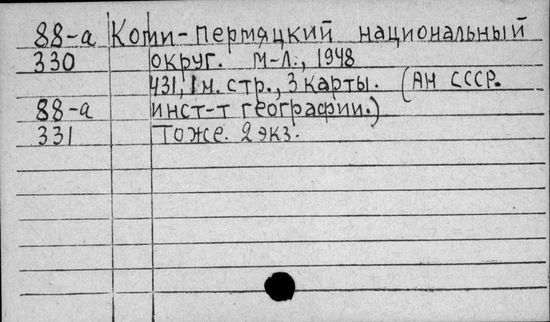 88-а Коми-Пермяцкий национальный
330 округ. М-Л., 1948
431, 1 м. стр., 3 карты. (АН СССР.
88-а инст-т географии.)
331 Тоже. 2 экз.